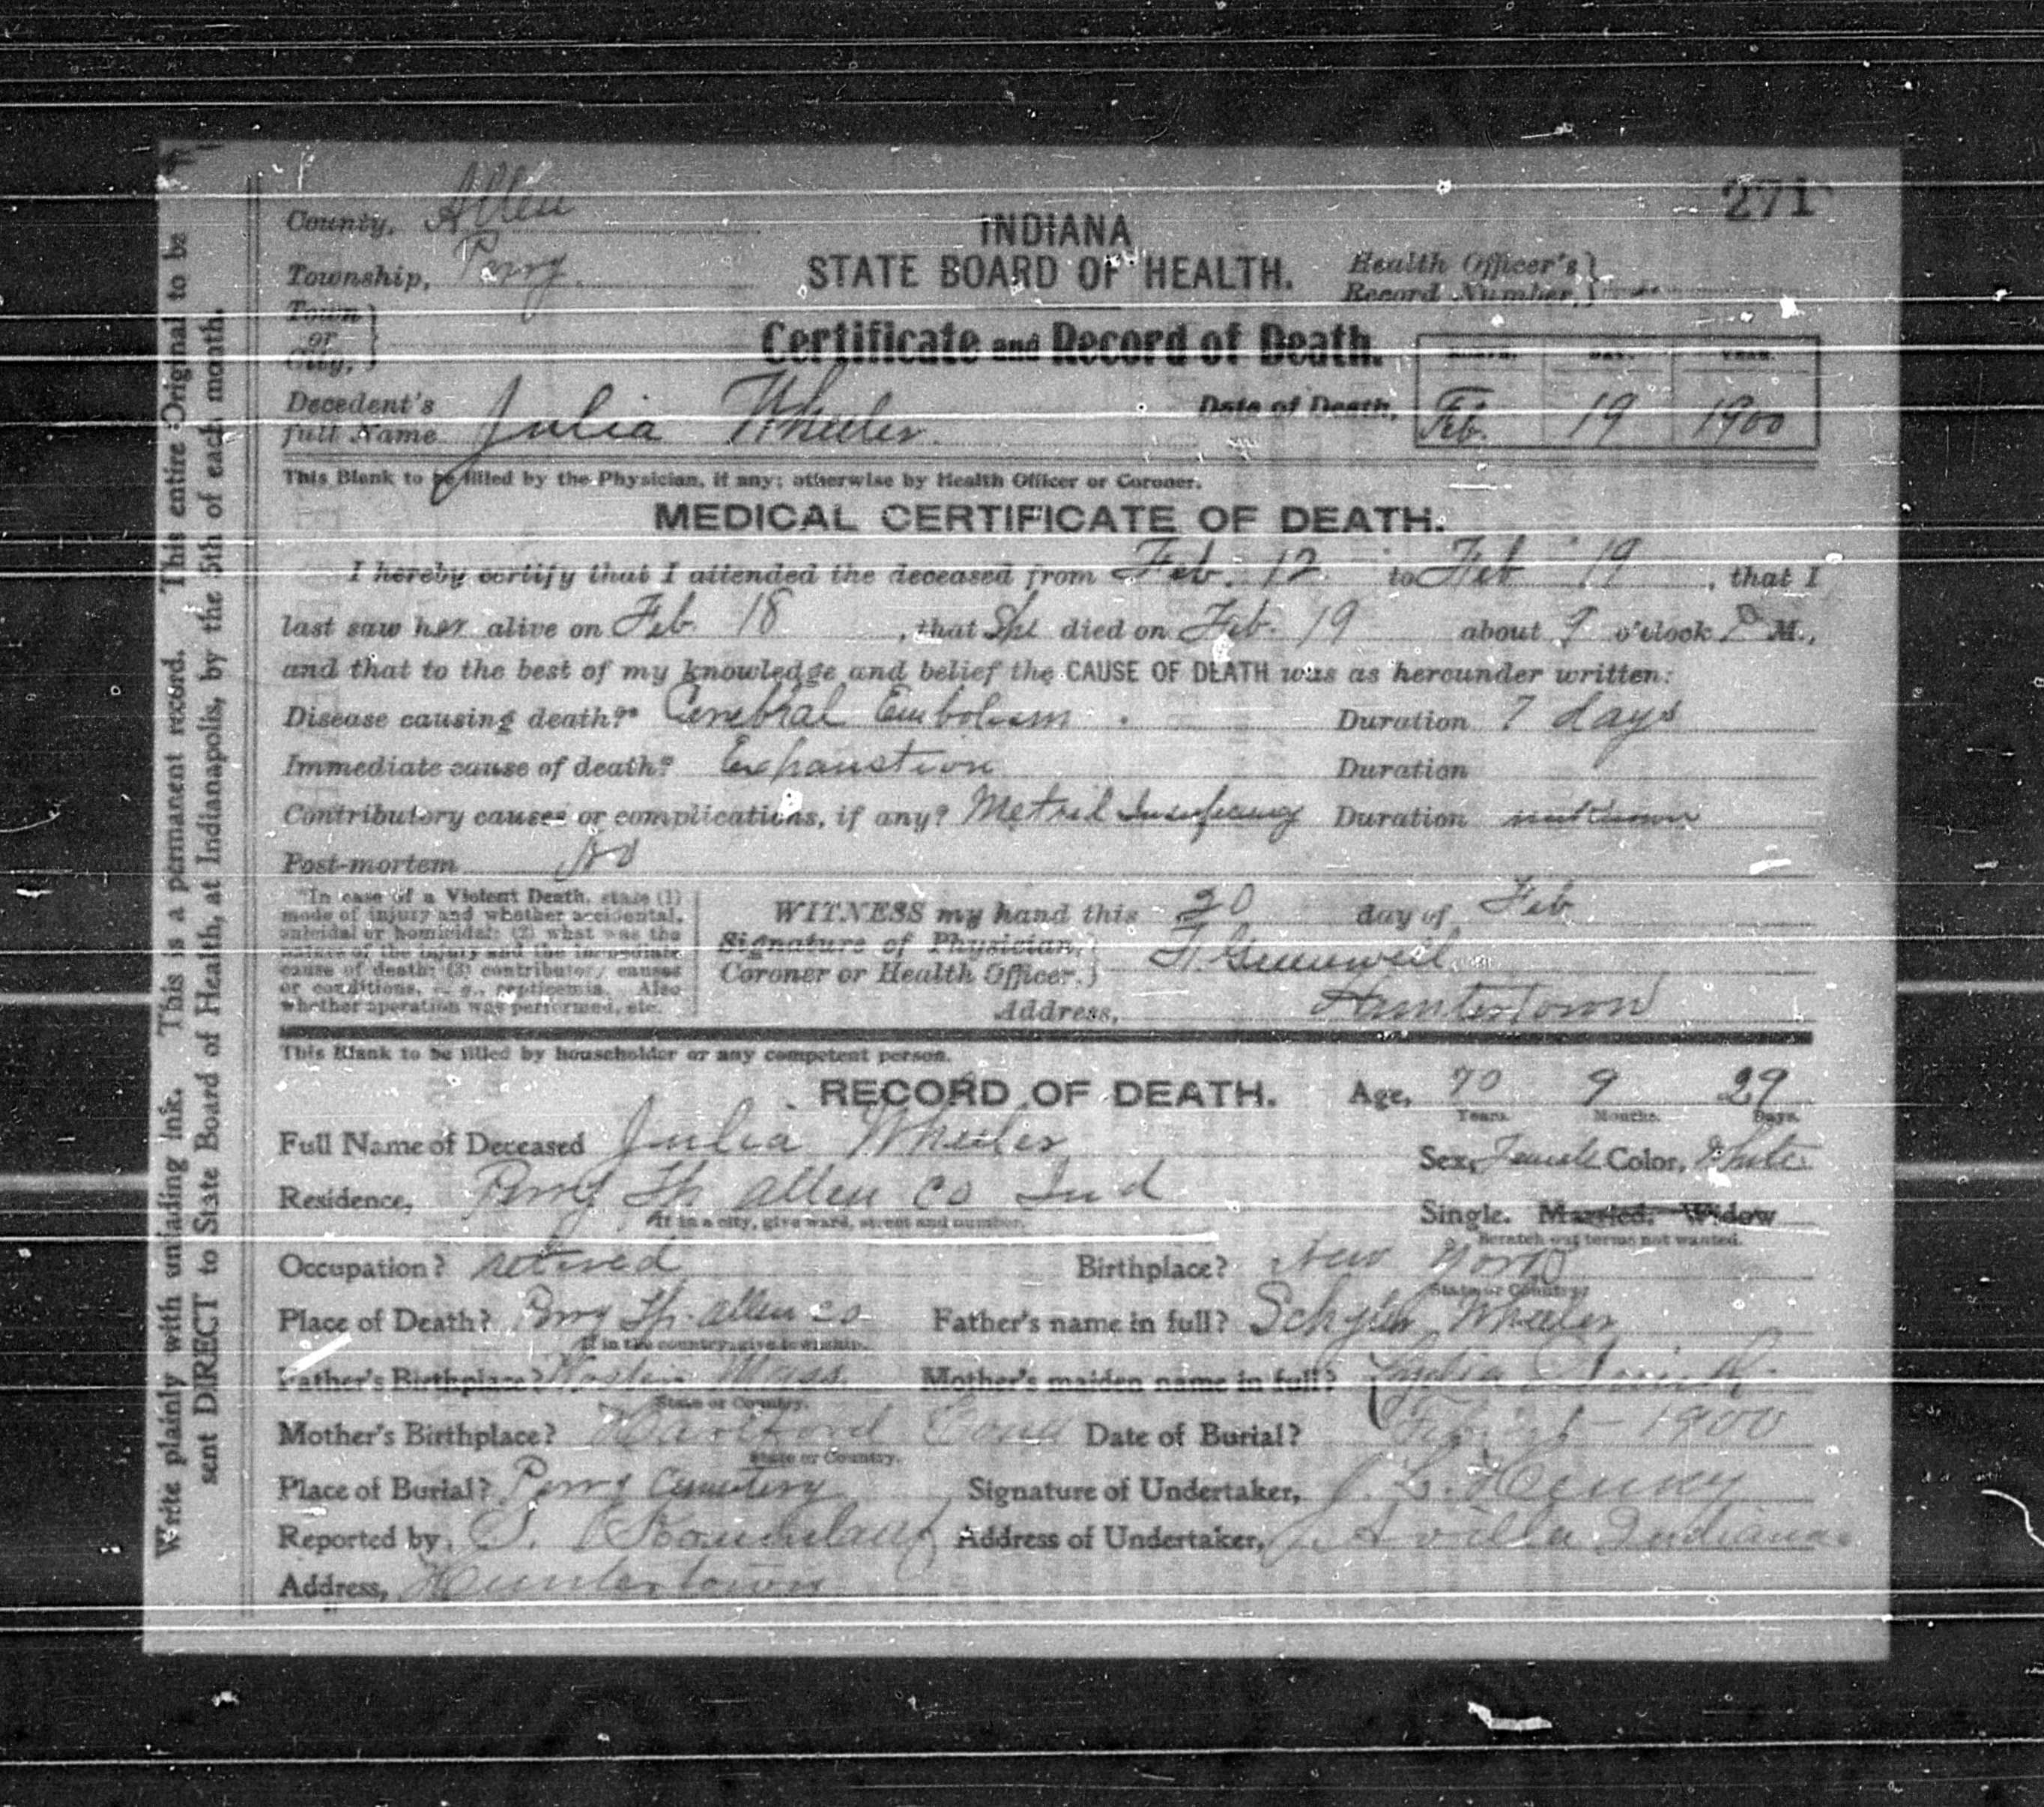 271
County, Allen
INDIANA
Township, Perry.
STATE BOARD OF HEALTH.
Health Officer's
Record Number,
Town
or
City,
Certificate and Record of Death.
MONTH. DAY. YEAR.
Decedent's
full Name Julia Wheeler.
Date of Death, Feb. 19 1900
This Blank to be filled by the Physician, if any; otherwise by Health Officer or Coroner.
MEDICAL CERTIFICATE OF DEATH.
I hereby certify that I attended the deceased from Feb. 12 to Feb 19, that I
last saw her alive on Feb. 18, that She died on Feb. 19 about 9 o'clock P M.,
and that to the best of my knowledge and belief the CAUSE OF DEATH was as hereunder written:
Disease causing death?* Cerebral Embolism. Duration 7 days
Immediate cause of death? Exhaustion Duration
Contributory causes or complications, if any? Duration unknown
Post-mortem No
*In case of a Violent Death, state (1)
mode of injury and whether accidental,
suicidal or homicidal; (2) what was the
nature of the injury and the immediate
cause of death; (3) contributory causes
or conditions, e. g., septicemia. Also
whether operation was performed, etc.
WITNESS my hand this 20 day of Feb
Signature of Physician,
Coroner or Health Officer, F. Greenwell
Address, Huntertown
This Blank to be filled by householder or any competent person.
RECORD OF DEATH.
Age, 70 9 29
Years. Months. Days.
Full Name of Deceased Julia Wheeler
Sex, Female Color, White
Residence, Perry Tp Allen Co Ind
If in a city, give ward, street and number.
Single. Married. Widow
Scratch out terms not wanted.
Occupation? retired Birthplace? New York
State or Country.
Place of Death? Perry Tp. Allen Co Father's name in full? Wheeler
If in the country, give township.
Father's Birthplace? Mass. Mother's maiden name in full? Lydia
State or Country.
Mother's Birthplace? Hartford Conn Date of Burial? Feb 21 - 1900
State or Country.
Place of Burial? Perry Cemetery Signature of Undertaker, J. L. Henry
Reported by, S. Address of Undertaker, Avilla Indiana.
Address, Huntertown
Write plainly with unfading ink. This is a permanent record. This entire Original to be
sent DIRECT to State Board of Health, at Indianapolis, by the 5th of each month.